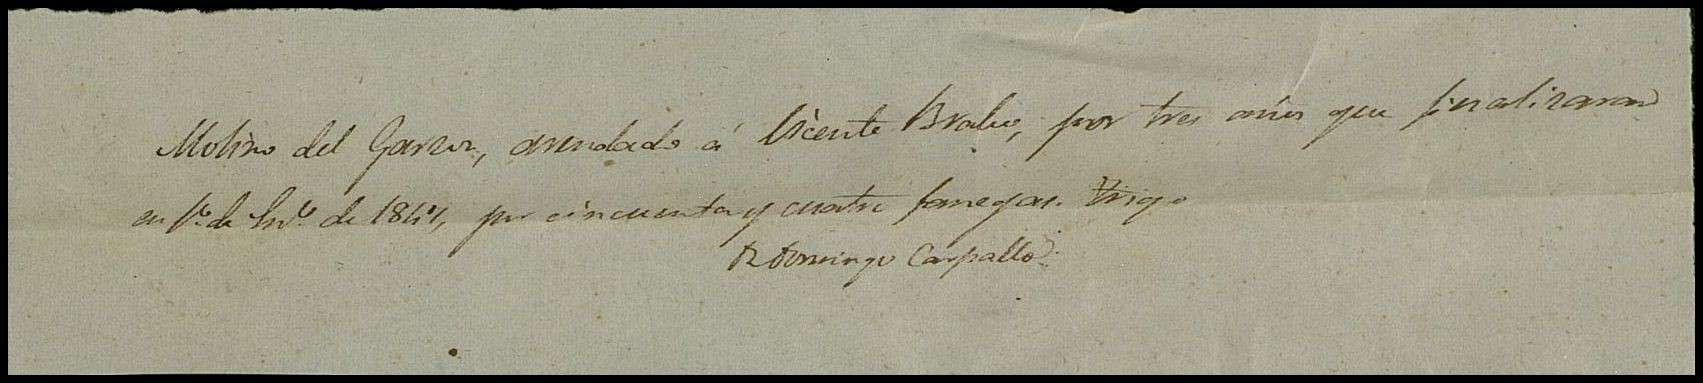 Molino del Garzon, arrendado á Vicente Brabo, por tres años que finalizaran
en 1º de En.º de 1847, por cincuenta y cuatro fanegas trigo
Domingo Carpallo